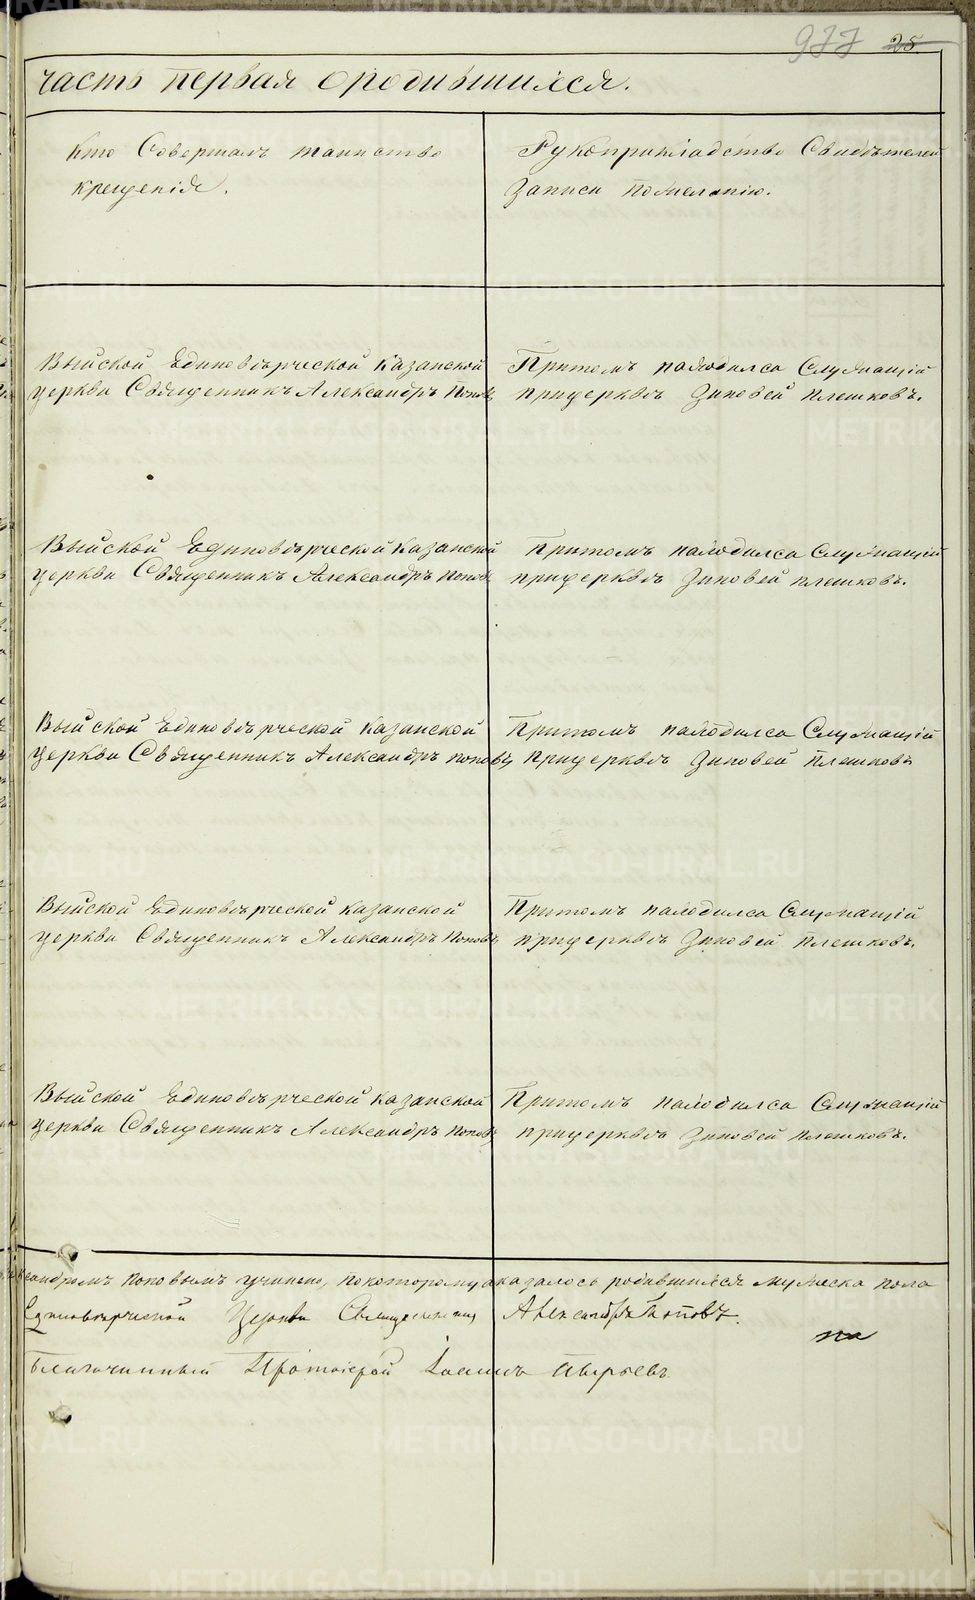 977 25
часть первая о родившихся.
Кто Совершалъ таинство
крещенія.
Рукоприкладство Свидѣтелей
Записи пожеланію.
Выйской Единовѣрческой Казанской
церкви Священникъ Александръ Поповъ
Притомъ находился Служащій
прицерквѣ Зиновей Плешковъ.
Выйской Единовѣрческой Казанской
церкви Священникъ Александръ Поповъ
Притомъ находился Служащій
прицерквѣ Зиновей Плешковъ.
Выйской Единовѣрческой Казанской
церкви Священникъ Александръ Поповъ
Притомъ находился Служащій
Прицерквѣ Зиновей Плешковъ
Выйской Единовѣрческой Казанской
церкви Священникъ Александръ Поповъ
Притомъ находился Служащій
прицерквѣ Зиновей Плешковъ.
Выйской Единовѣрческой Казанской
церкви Священникъ Александръ Поповъ
Притомъ находился Служащій
прицерквѣ Зиновей Плешковъ.
ксандромъ Поповымъ учинено, покоторому аказалось родившихся мужеска пола
Единоверческой Церкви Священникъ Александръ Поповъ.
на
Благочинный Протоіерей Іоаннъ Пырьевъ
METRIKI.GASO-URAL.RU